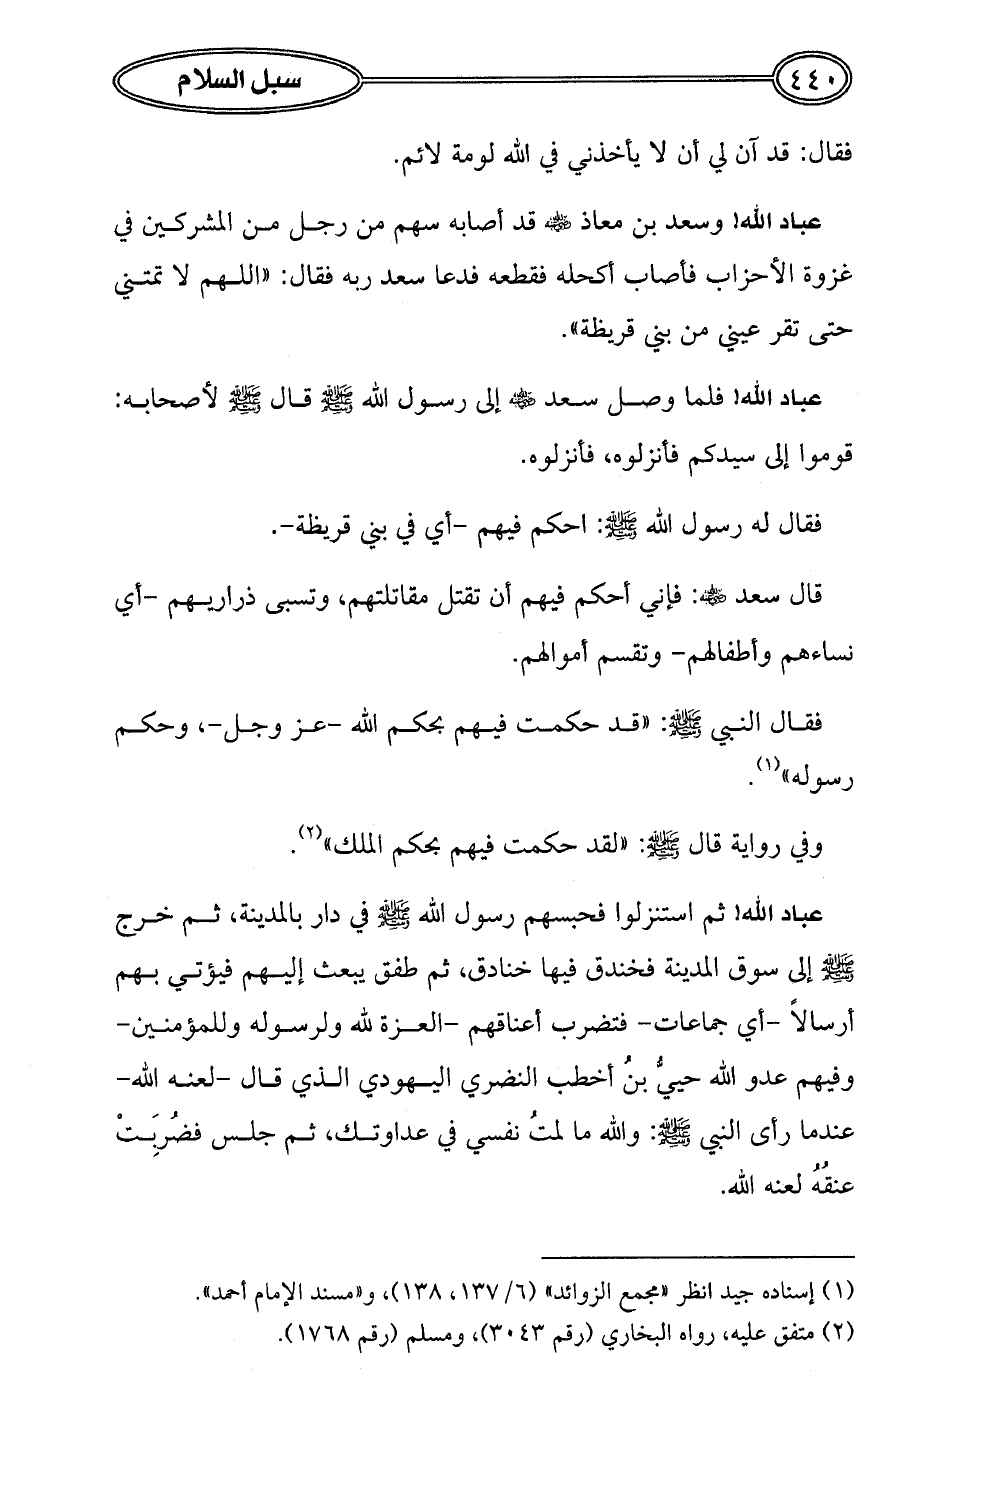 ٤٤٠
سبل السلام
فقال: قد آن لي أن لا يأخذني في الله لومة لائم.
عباد الله! وسعد بن معاذ ﵁ قد أصابه سهم من رجل من المشركين في
غزوة الأحزاب فأصاب أكحله فقطعه فدعا سعد ربه فقال: «اللهم لا تمتني
حتى تقر عيني من بني قريظة».
عباد الله! فلما وصل سعد ﵁ إلى رسول الله ﷺ قال ﷺ لأصحابه:
قوموا إلى سيدكم فأنزلوه، فأنزلوه.
فقال له رسول الله ﷺ: احكم فيهم -أي في بني قريظة-.
قال سعد ﵁: فإني أحكم فيهم أن تقتل مقاتلتهم، وتسبى ذراريهم -أي
نساءهم وأطفالهم- وتقسم أموالهم.
فقال النبي ﷺ: «قد حكمت فيهم بحكم الله -عز وجل-، وحكم
رسوله»(١).
وفي رواية قال ﷺ: «لقد حكمت فيهم بحكم الملك»(٢).
عباد الله! ثم استنزلوا فحبسهم رسول الله ﷺ في دار بالمدينة، ثم خرج
ﷺ إلى سوق المدينة فخندق فيها خنادق، ثم طفق يبعث إليهم فيؤتي بهم
أرسالاً -أي جماعات- فتضرب أعناقهم -العزة لله ولرسوله وللمؤمنين-
وفيهم عدو الله حييُّ بنُ أخطب النضري اليهودي الذي قال -لعنه الله-
عندما رأى النبي ﷺ: والله ما لمتُ نفسي في عداوتك، ثم جلس فضُرِبَتْ
عنقُهُ لعنه الله.
(١) إسناده جيد انظر «مجمع الزوائد» (٦/ ١٣٧، ١٣٨)، و«مسند الإمام أحمد».
(٢) متفق عليه، رواه البخاري (رقم ٣٠٤٣)، ومسلم (رقم ١٧٦٨).